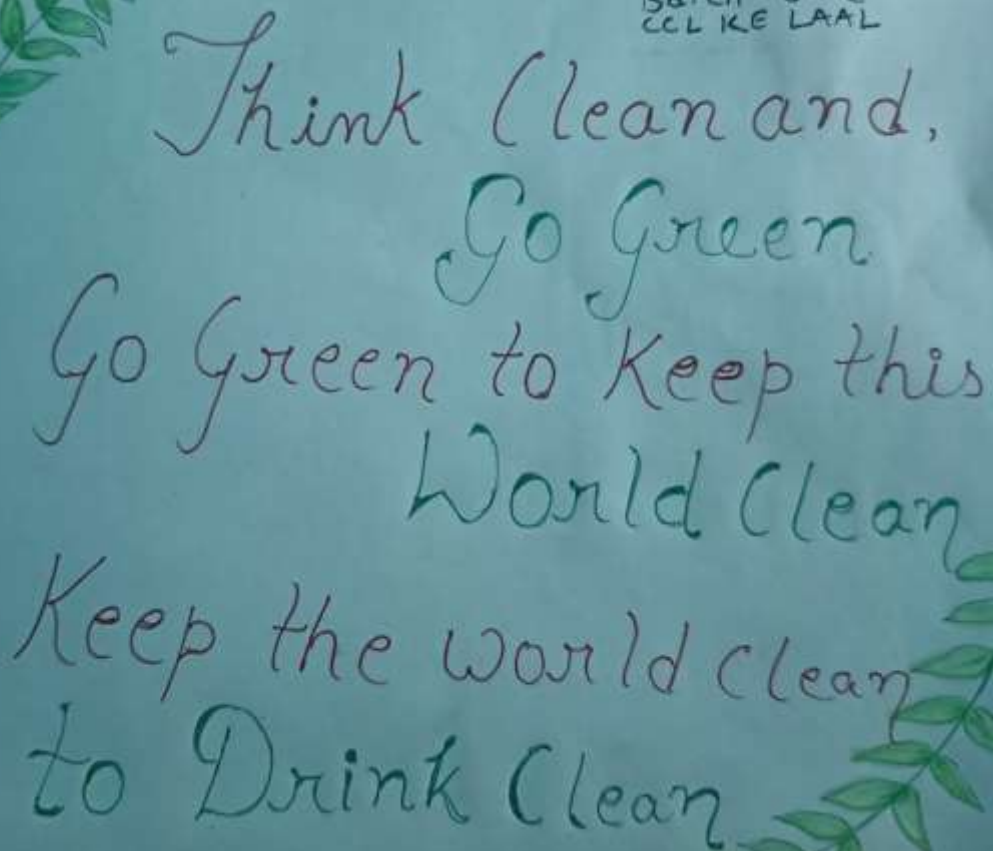 CCL KE LAAL
Think Clean and,
Go Green
Go Green to Keep this
World Clean
Keep the world clean
to Drink Clean